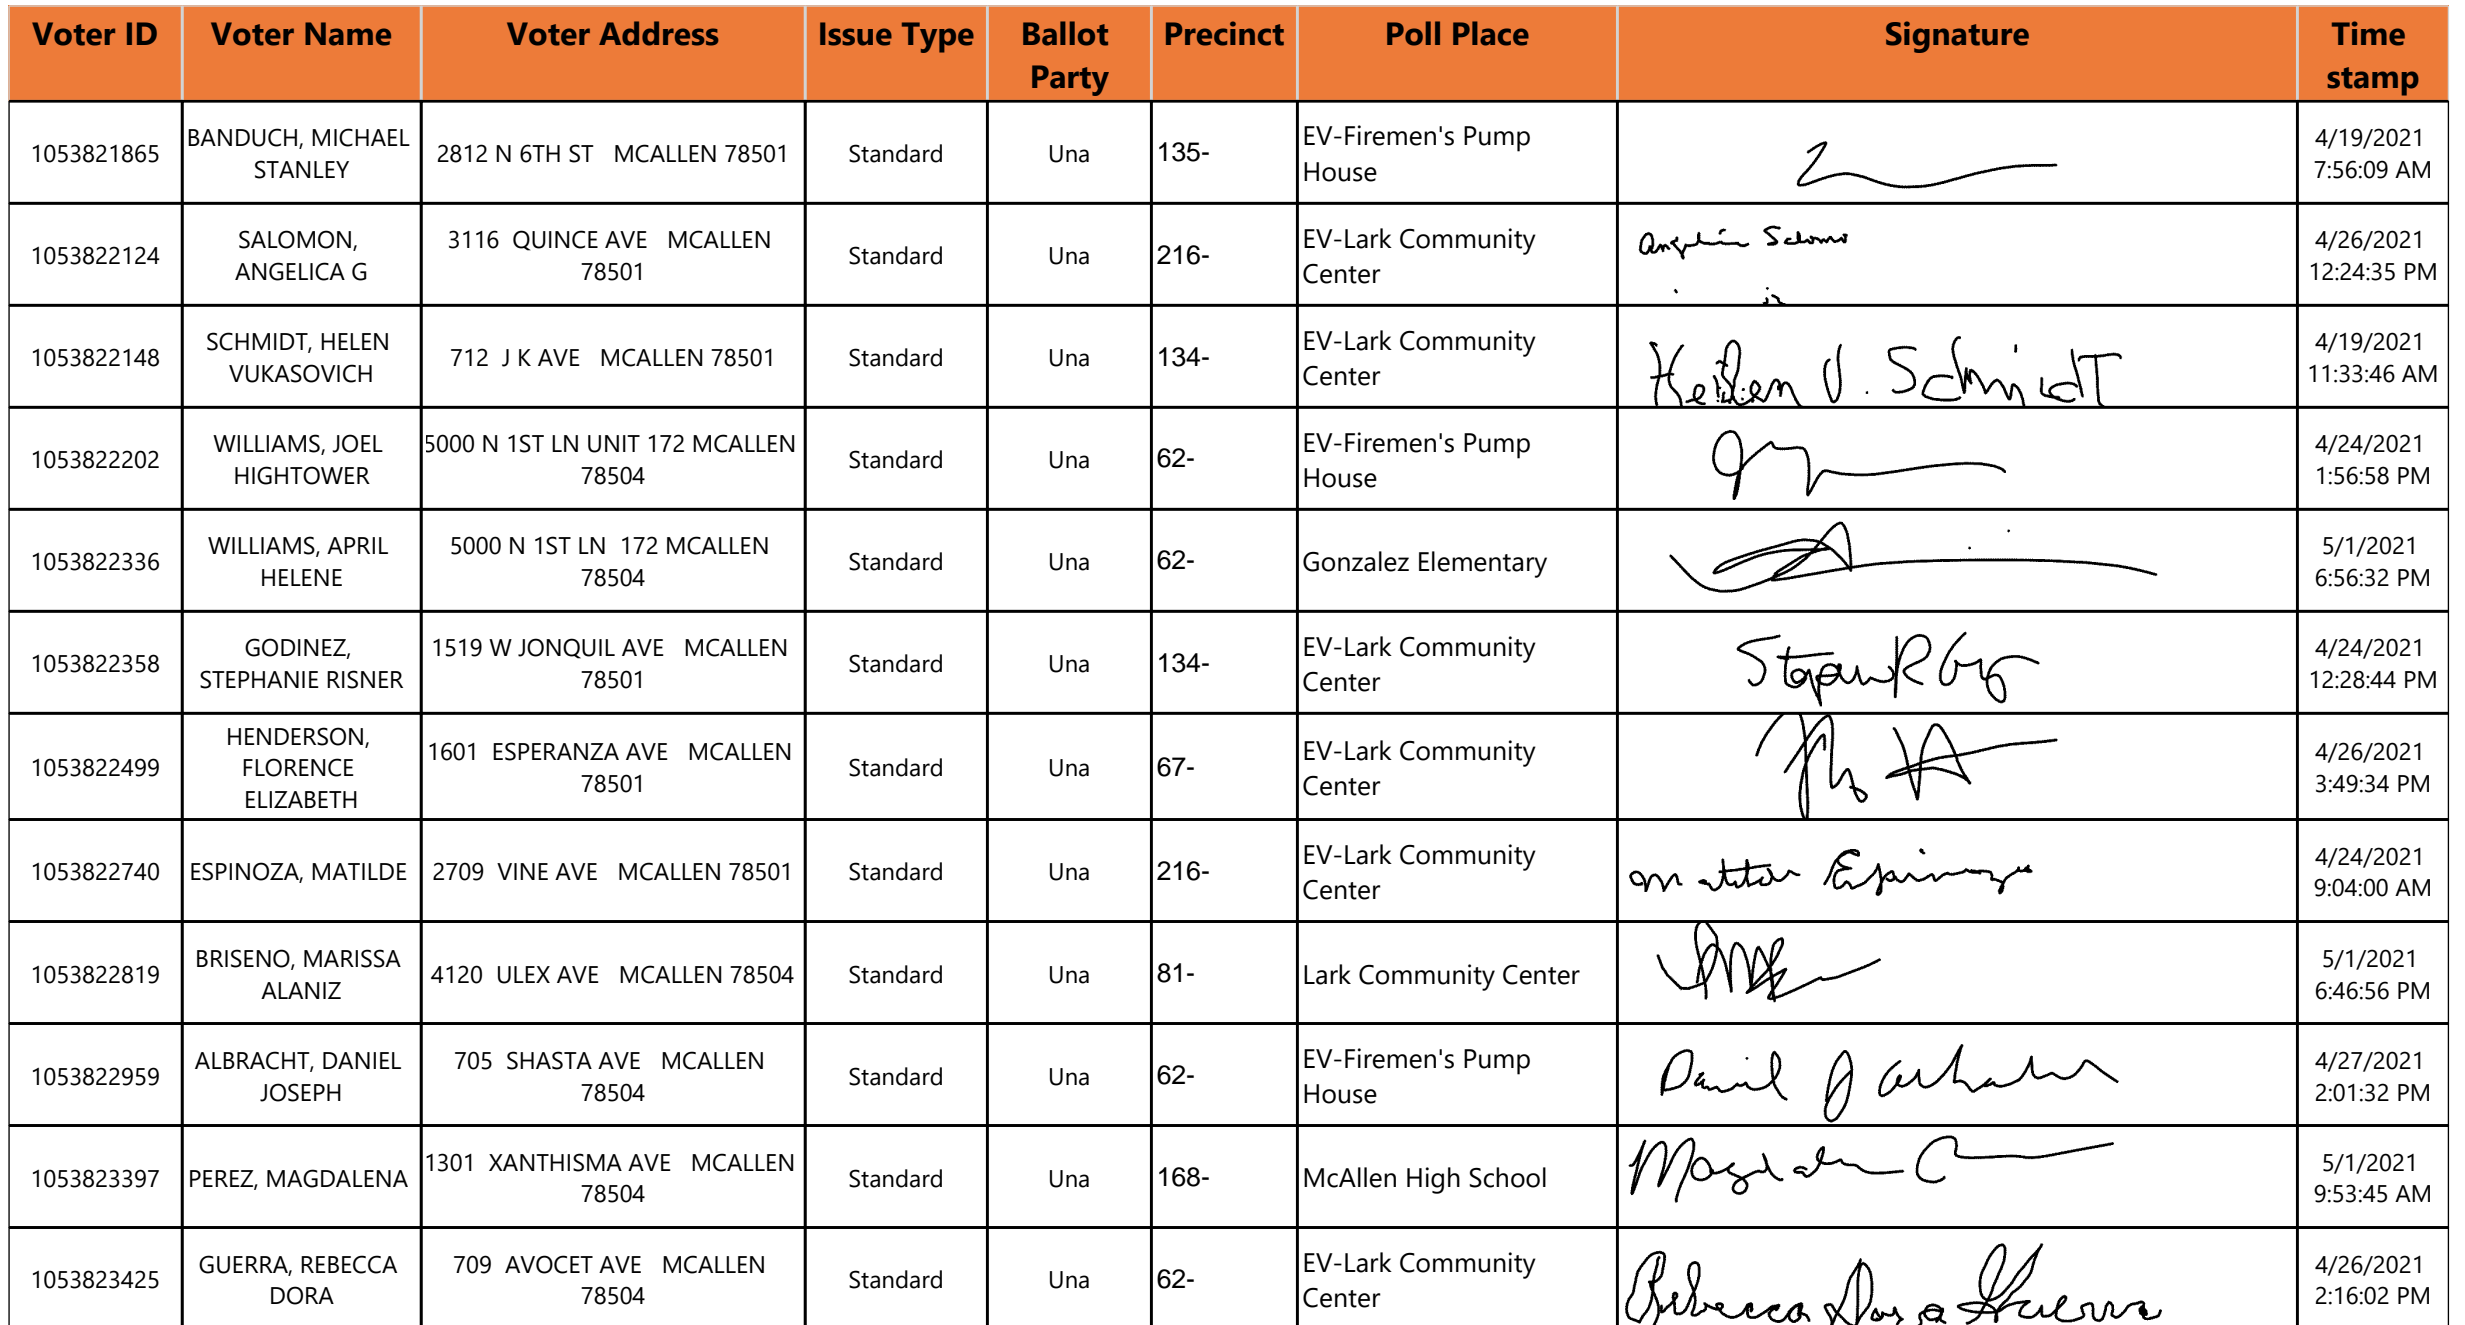 Voter ID Voter Name Voter Address Issue Type Ballot Party Precinct Poll Place Signature Time stamp
1053821865 BANDUCH, MICHAEL STANLEY 2812 N 6TH ST MCALLEN 78501 Standard Una 135- EV-Firemen's Pump House 4/19/2021 7:56:09 AM
1053822124 SALOMON, ANGELICA G 3116 QUINCE AVE MCALLEN 78501 Standard Una 216- EV-Lark Community Center 4/26/2021 12:24:35 PM
1053822148 SCHMIDT, HELEN VUKASOVICH 712 J K AVE MCALLEN 78501 Standard Una 134- EV-Lark Community Center Helen V. Schmidt 4/19/2021 11:33:46 AM
1053822202 WILLIAMS, JOEL HIGHTOWER 5000 N 1ST LN UNIT 172 MCALLEN 78504 Standard Una 62- EV-Firemen's Pump House 4/24/2021 1:56:58 PM
1053822336 WILLIAMS, APRIL HELENE 5000 N 1ST LN 172 MCALLEN 78504 Standard Una 62- Gonzalez Elementary 5/1/2021 6:56:32 PM
1053822358 GODINEZ, STEPHANIE RISNER 1519 W JONQUIL AVE MCALLEN 78501 Standard Una 134- EV-Lark Community Center 4/24/2021 12:28:44 PM
1053822499 HENDERSON, FLORENCE ELIZABETH 1601 ESPERANZA AVE MCALLEN 78501 Standard Una 67- EV-Lark Community Center 4/26/2021 3:49:34 PM
1053822740 ESPINOZA, MATILDE 2709 VINE AVE MCALLEN 78501 Standard Una 216- EV-Lark Community Center 4/24/2021 9:04:00 AM
1053822819 BRISENO, MARISSA ALANIZ 4120 ULEX AVE MCALLEN 78504 Standard Una 81- Lark Community Center 5/1/2021 6:46:56 PM
1053822959 ALBRACHT, DANIEL JOSEPH 705 SHASTA AVE MCALLEN 78504 Standard Una 62- EV-Firemen's Pump House Daniel J 4/27/2021 2:01:32 PM
1053823397 PEREZ, MAGDALENA 1301 XANTHISMA AVE MCALLEN 78504 Standard Una 168- McAllen High School 5/1/2021 9:53:45 AM
1053823425 GUERRA, REBECCA DORA 709 AVOCET AVE MCALLEN 78504 Standard Una 62- EV-Lark Community Center Rebecca Dora Guerra 4/26/2021 2:16:02 PM